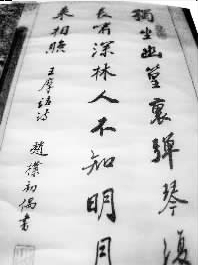 獨坐幽篁裏彈琴復
長嘯深林人不知明月
來相照
王摩詰诗
趙樸初偶書